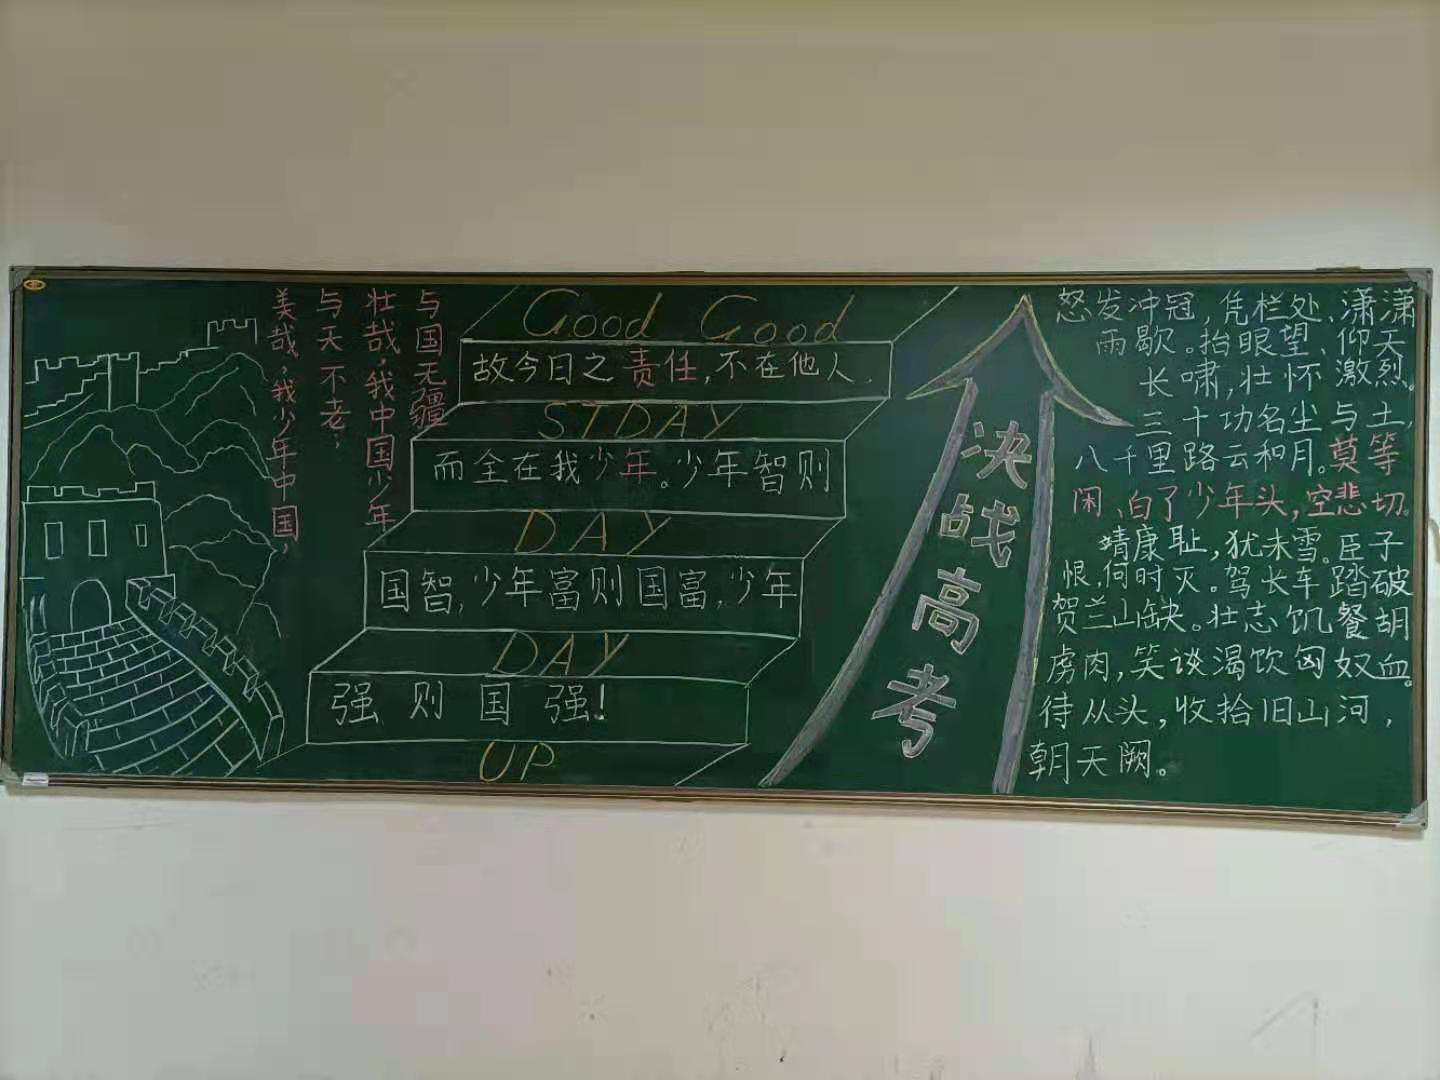 美哉,我少年中国,
与天不老;
壮哉,我中国少年
与国无疆
Good Good
故今日之责任,不在他人,
STDAY
而全在我少年。少年智则
DAY
国智,少年富则国富,少年
DAY
强则国强!
UP
决战高考
怒发冲冠,凭栏处、潇潇
雨歇。抬眼望、仰天
长啸,壮怀激烈。
三十功名尘与土,
八千里路云和月。莫等
闲、白了少年头,空悲切。
靖康耻,犹未雪。臣子
恨,何时灭。驾长车踏破
贺兰山缺。壮志饥餐胡
虏肉,笑谈渴饮匈奴血。
待从头,收拾旧山河,
朝天阙。